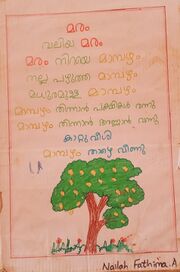 മരം
വലിയ മരം
മരം നിറയെ മാമ്പഴം
നല്ല പഴുത്ത മാമ്പഴം
മധുരമുള്ള മാമ്പഴം
മാമ്പഴം തിന്നാൻ പക്ഷികൾ വന്നു
മാമ്പഴം തിന്നാൻ അണ്ണാൻ വന്നു
കാറ്റു വീശി
മാമ്പഴം താഴെ വീണു
Nailah Fathima. A